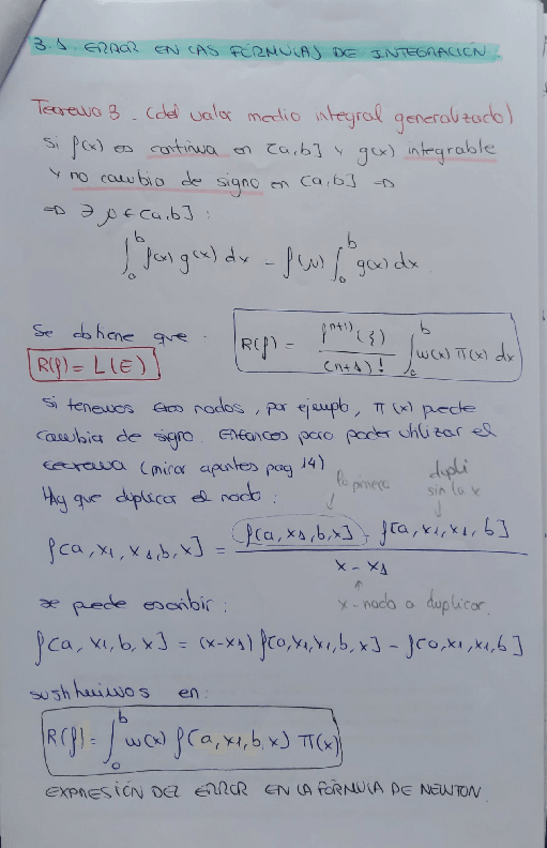 3.1 ERROR EN LAS FÓRMULAS DE INTEGRACIÓN.
Teorema 3. (del valor medio integral generalizado)
Si f(x) es continua en [a,b] y g(x) integrable
y no cambia de signo en [a,b] ⇒
⇒ ∃ μ ∈ [a,b] :
∫_a^b f(x) g(x) dx = f(μ) ∫_a^b g(x) dx
Se obtiene que
R(f) = f^{n+1)}(ξ) / (n+1)! ∫_a^b w(x) π(x) dx
R(f) = L(E)
Si tenemos otros nodos, por ejemplo, π(x) puede
cambiar de signo. Entonces para poder utilizar el
teorema (mirar apuntes pag 14)
Hay que duplicar el nodo:
la primera
dupli
sin la x
f[a, x1, x1, b, x] = (f[a, x1, b, x] - f[a, x1, x1, b]) / (x - x1)
x - nodo a duplicar.
se puede escribir:
f[a, x1, b, x] = (x-x1) f[a,x1,x1,b,x] - f[a,x1,x1,b]
sustituimos en:
R(f) = ∫_a^b w(x) f[a, x1, b, x] π(x)
EXPRESIÓN DEL ERROR EN LA FÓRMULA DE NEWTON.